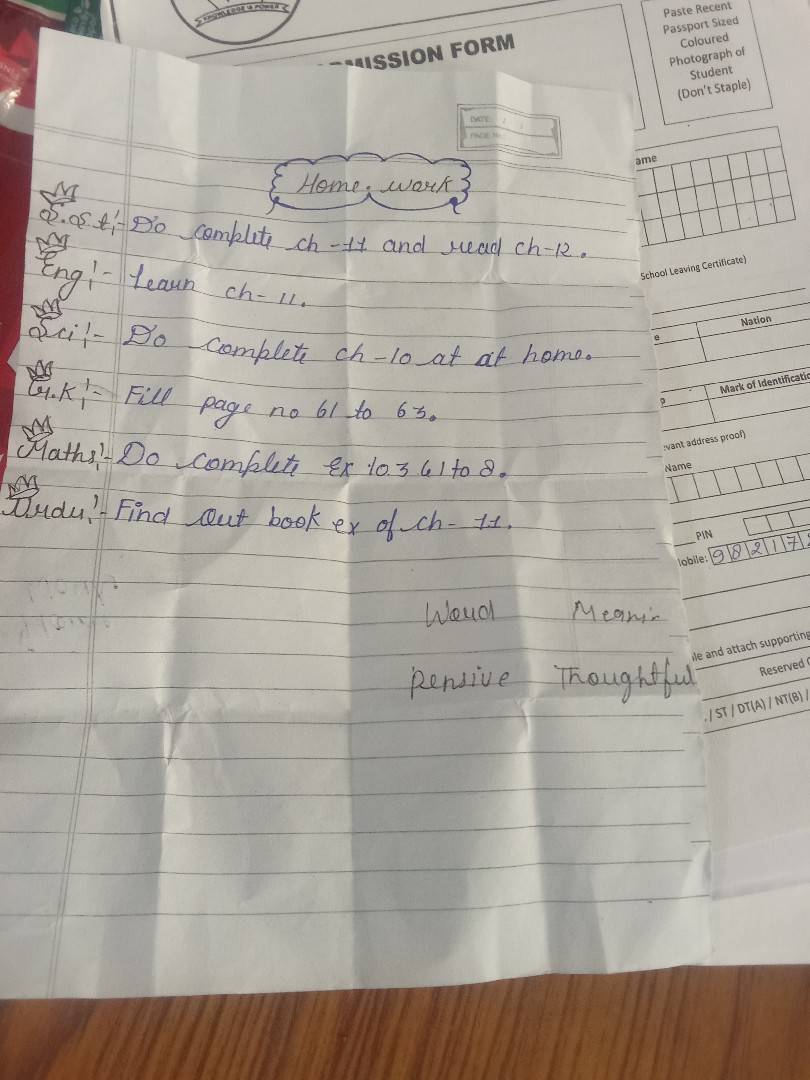 KNOWLEDGE IS POWER
MISSION FORM
Paste Recent
Passport Sized
Coloured
Photograph of
Student
(Don't Staple)
DATE: / /
PAGE No
Home. work
S.st:- Do complete ch-11 and read ch-12.
Eng:- Learn ch-11.
Sci:- Do complete ch-10 at at home.
G.K:- Fill page no 61 to 63.
Maths:- Do complete Ex 10.3 Q1 to 8.
Urdu:- Find out book ex of ch-11.
Word Meanin
Pensive Thoughtful
ame
School Leaving Certificate)
Nation
Mark of Identificatio
vant address proof)
Name
PIN
lobile: 98217
le and attach supporting
Reserved
/ ST / DT(A) / NT(B) /